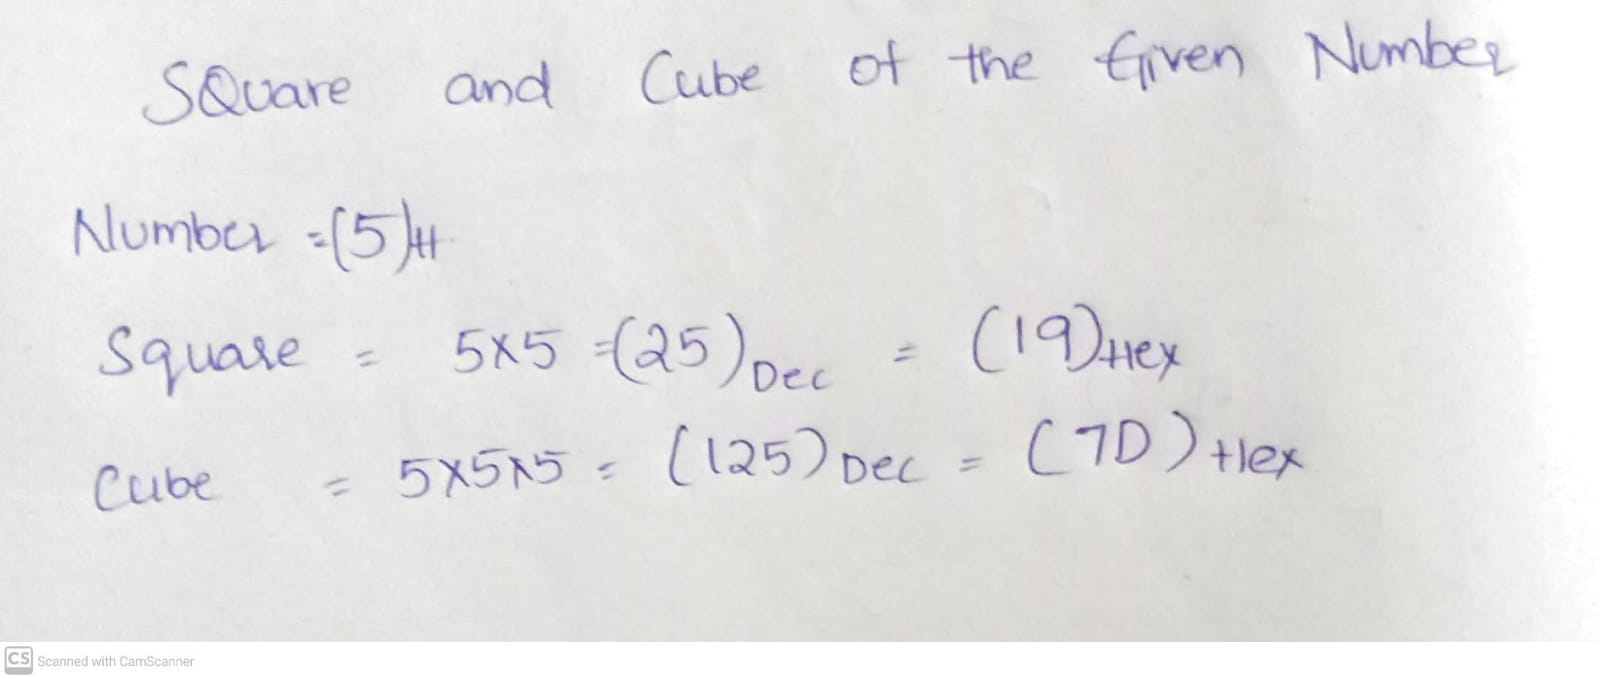 SQuare and Cube of the Given Number
Number =(5)H
Square = 5x5 =(25)Dec = (19)Hex
Cube = 5x5x5 = (125)Dec = (7D)Hex
CS Scanned with CamScanner